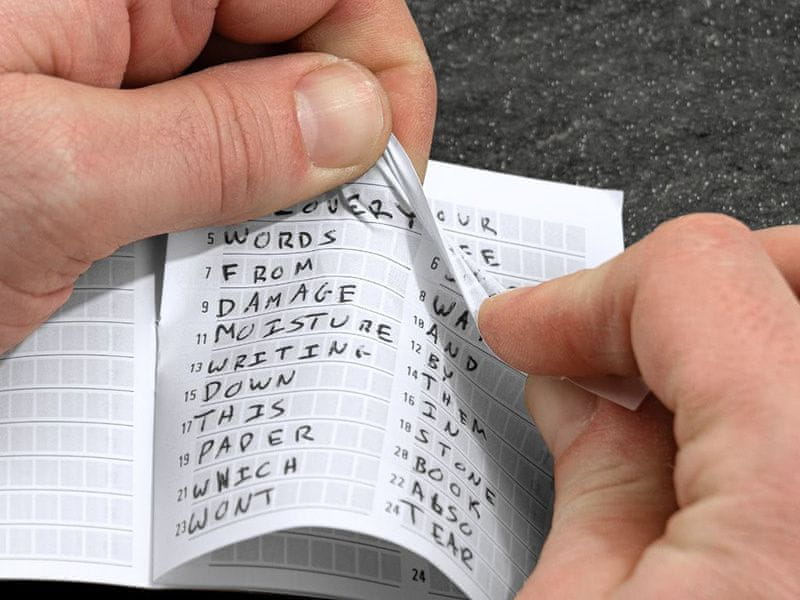 5 WORDS
7 FROM
9 DAMAGE
11 MOISTURE
13 WRITING
15 DOWN
17 THIS
19 PAPER
21 WHICH
23 WONT
OUR
6
8 WA
10 AND
12 BY
14 THEM
16 IN
18 STONE
20 BOOK
22 ABSO
24 TEAR
24